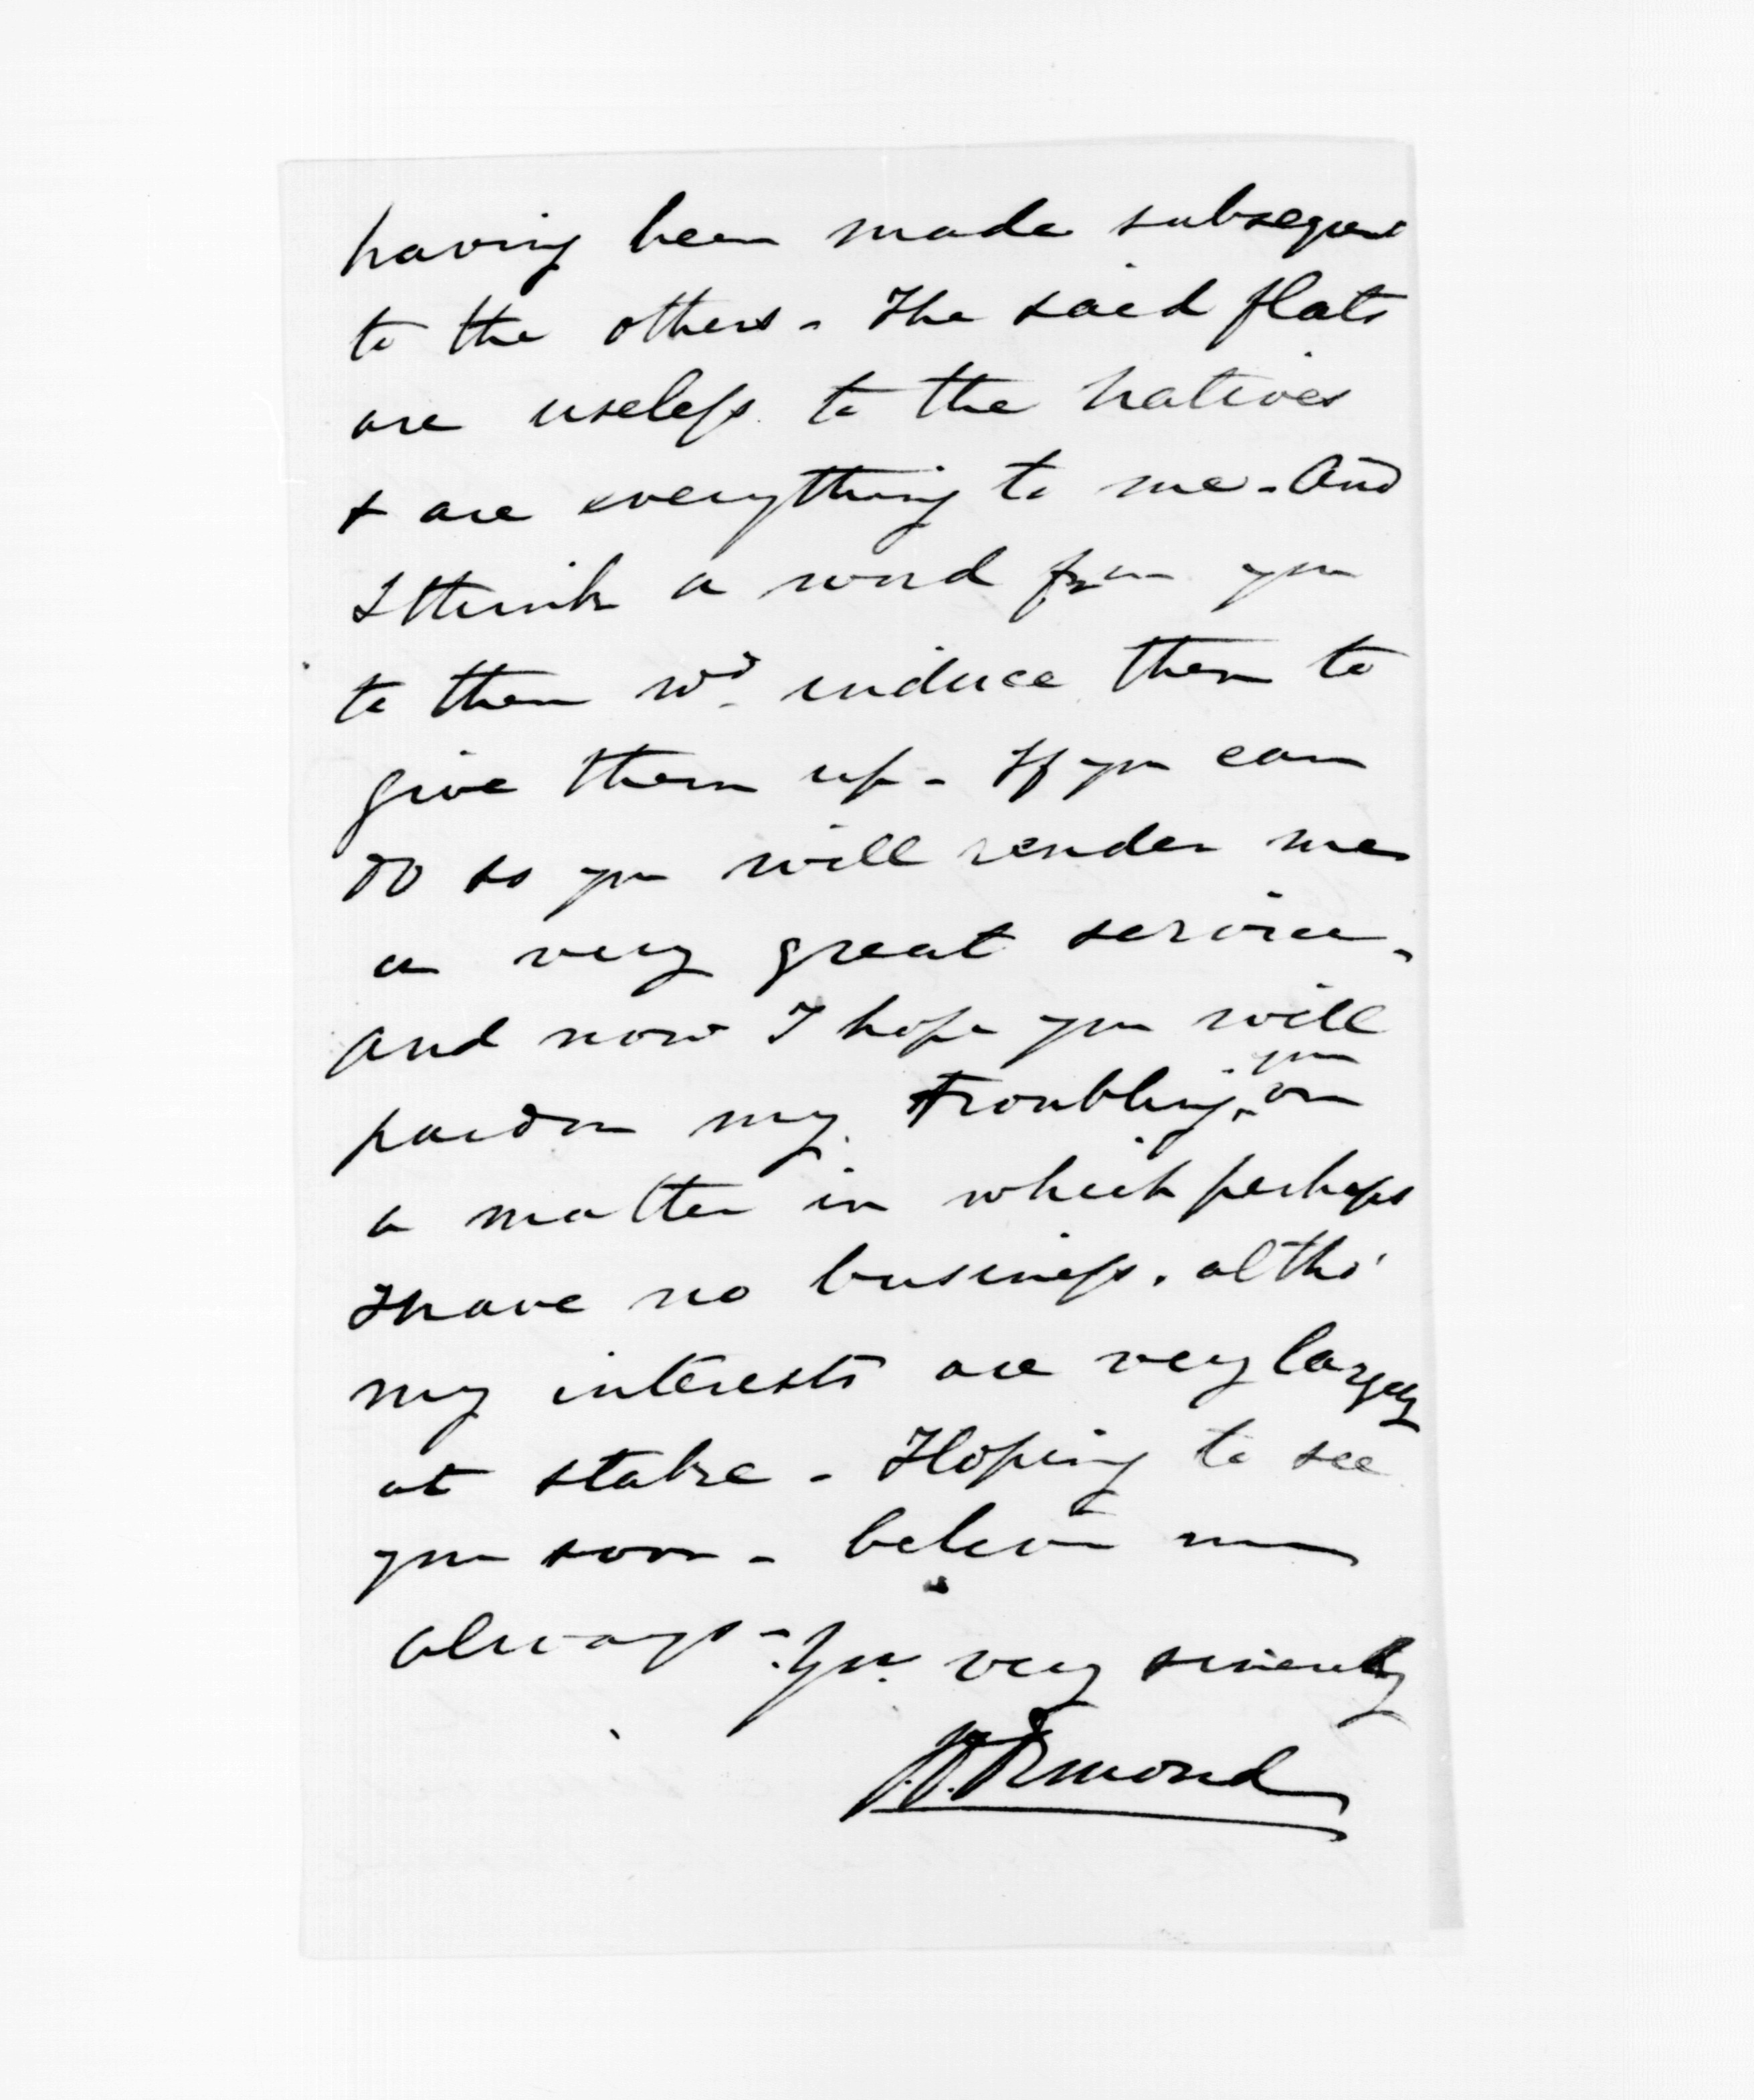 having been made subsequent
to the others - The said flats
are useless to the natives
& are everything to me - And
I think a word from you
to them wd. induce them to
give them up - If you can
do so you will render me
a very great service -
and now I hope you will
you
pardon my troubling on
a matter in which perhaps
I have no business. altho'
my interests are very largely
at stake - Hoping to see
you soon - believe me
always - Yrs. very sincerely
J.D. Ormond